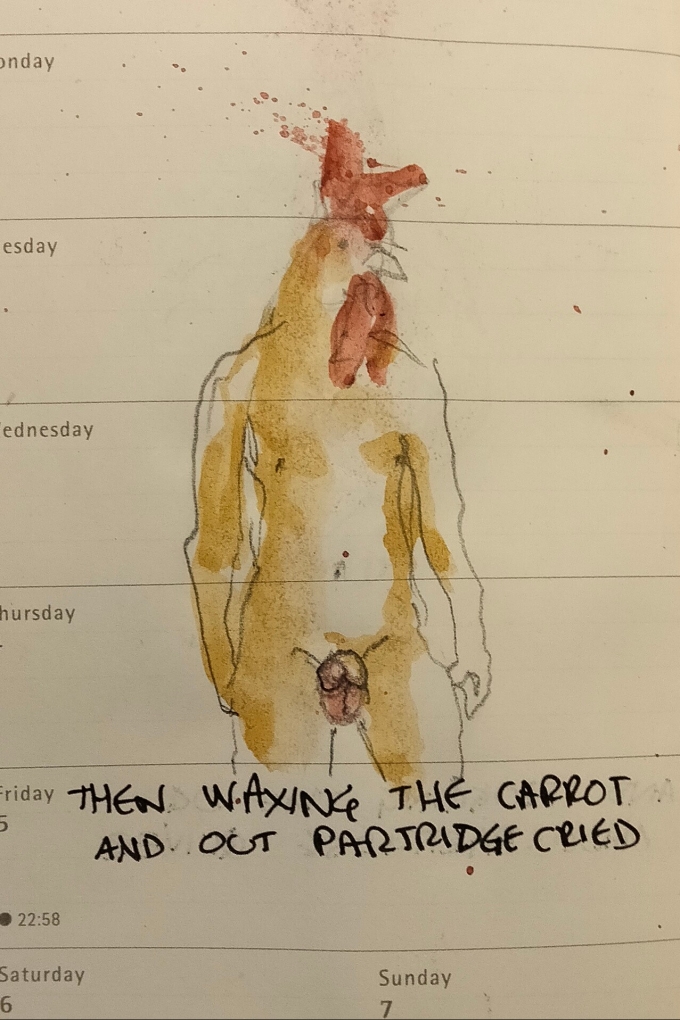 onday
esday
ednesday
hursday
Friday
5
THEN WAXING THE CARROT
AND OUT PARTRIDGE CRIED
22:58
Saturday
6
Sunday
7